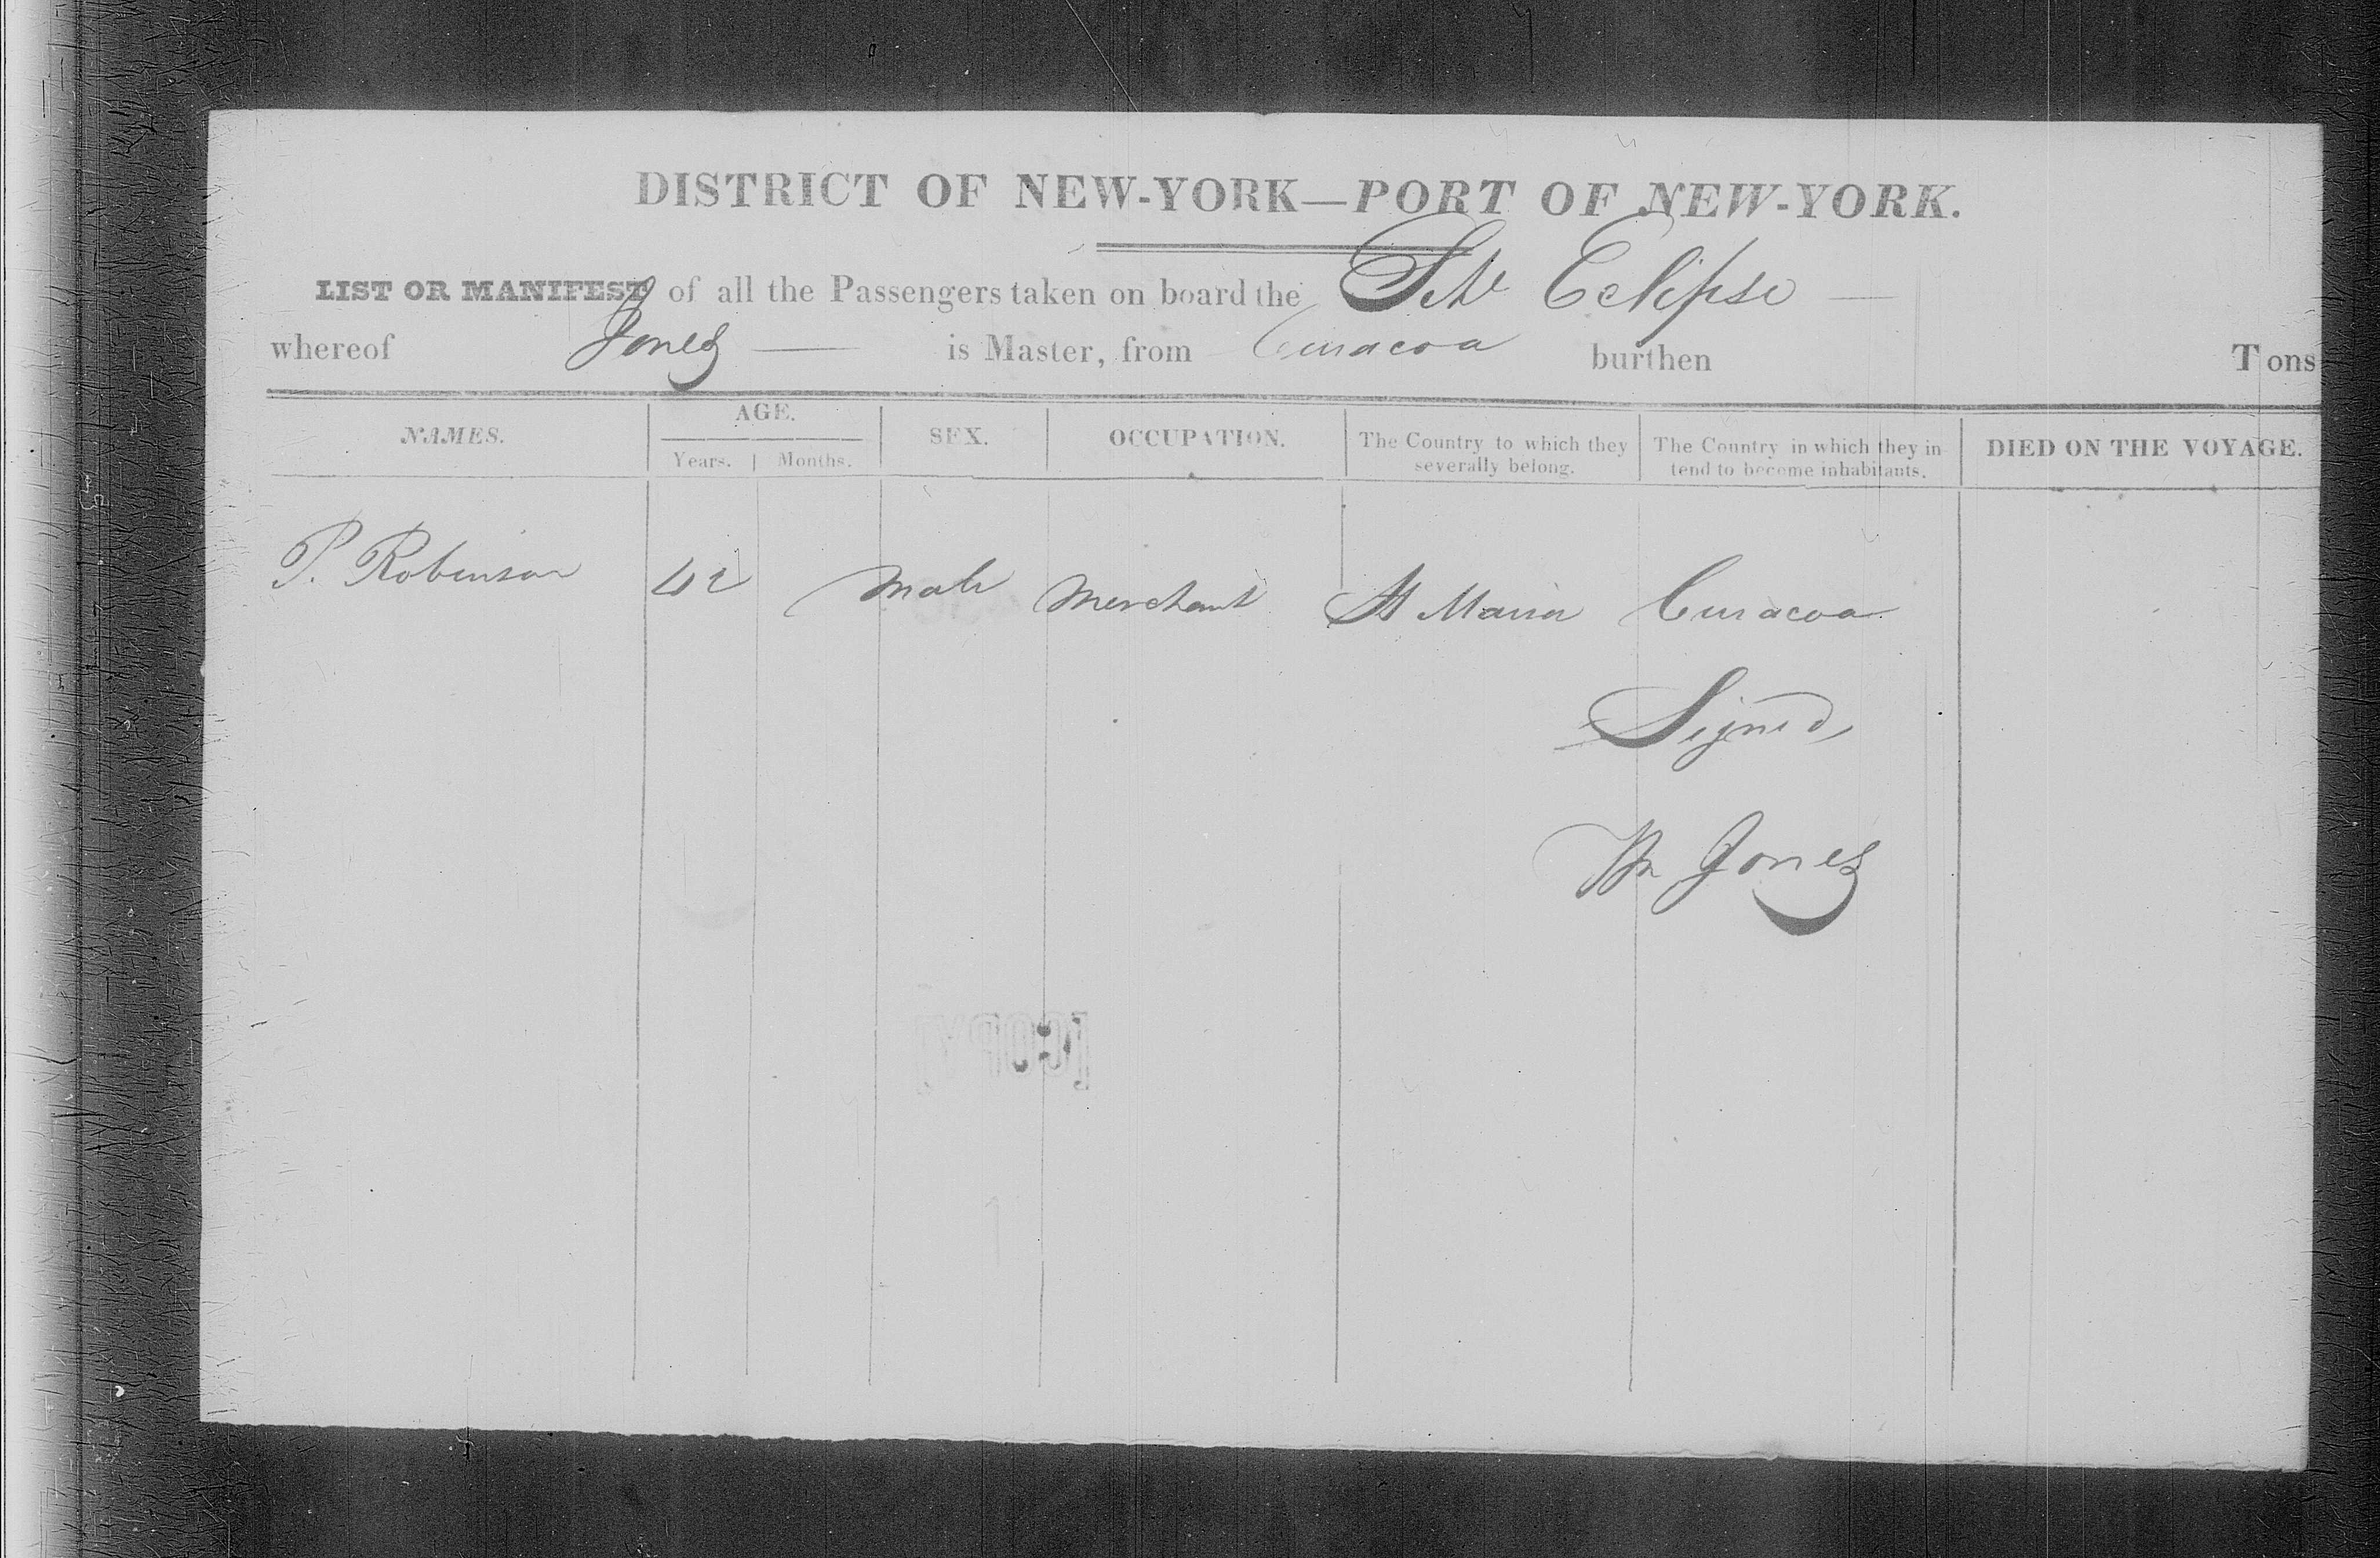 DISTRICT OF NEW-YORK—PORT OF NEW-YORK.
LIST OR MANIFEST of all the Passengers taken on board the Schr Eclipse
whereof Jones is Master, from Curacoa burthen Tons
NAMES. AGE. SEX. OCCUPATION. The Country to which they severally belong. The Country in which they intend to become inhabitants. DIED ON THE VOYAGE.
Years. Months.
P. Robinson 42 Male Merchant St Maria Curacoa
Signed
Wm Jones
[COPY]